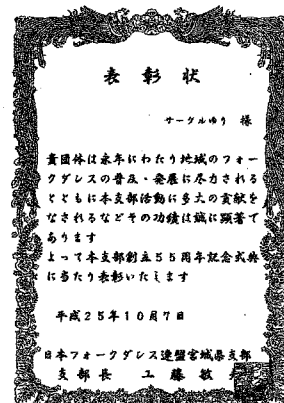 表彰状
サークルゆり 様
貴団体は永年にわたり地域のフォー
クダンスの普及・発展に尽力される
とともに本支部活動に多大の貢献を
なされるなどその功績は誠に顕著で
あります
よって本支部創立55周年記念式典
に当たり表彰いたします
平成25年10月7日
日本フォークダンス連盟宮城県支部
支部長 工藤敏